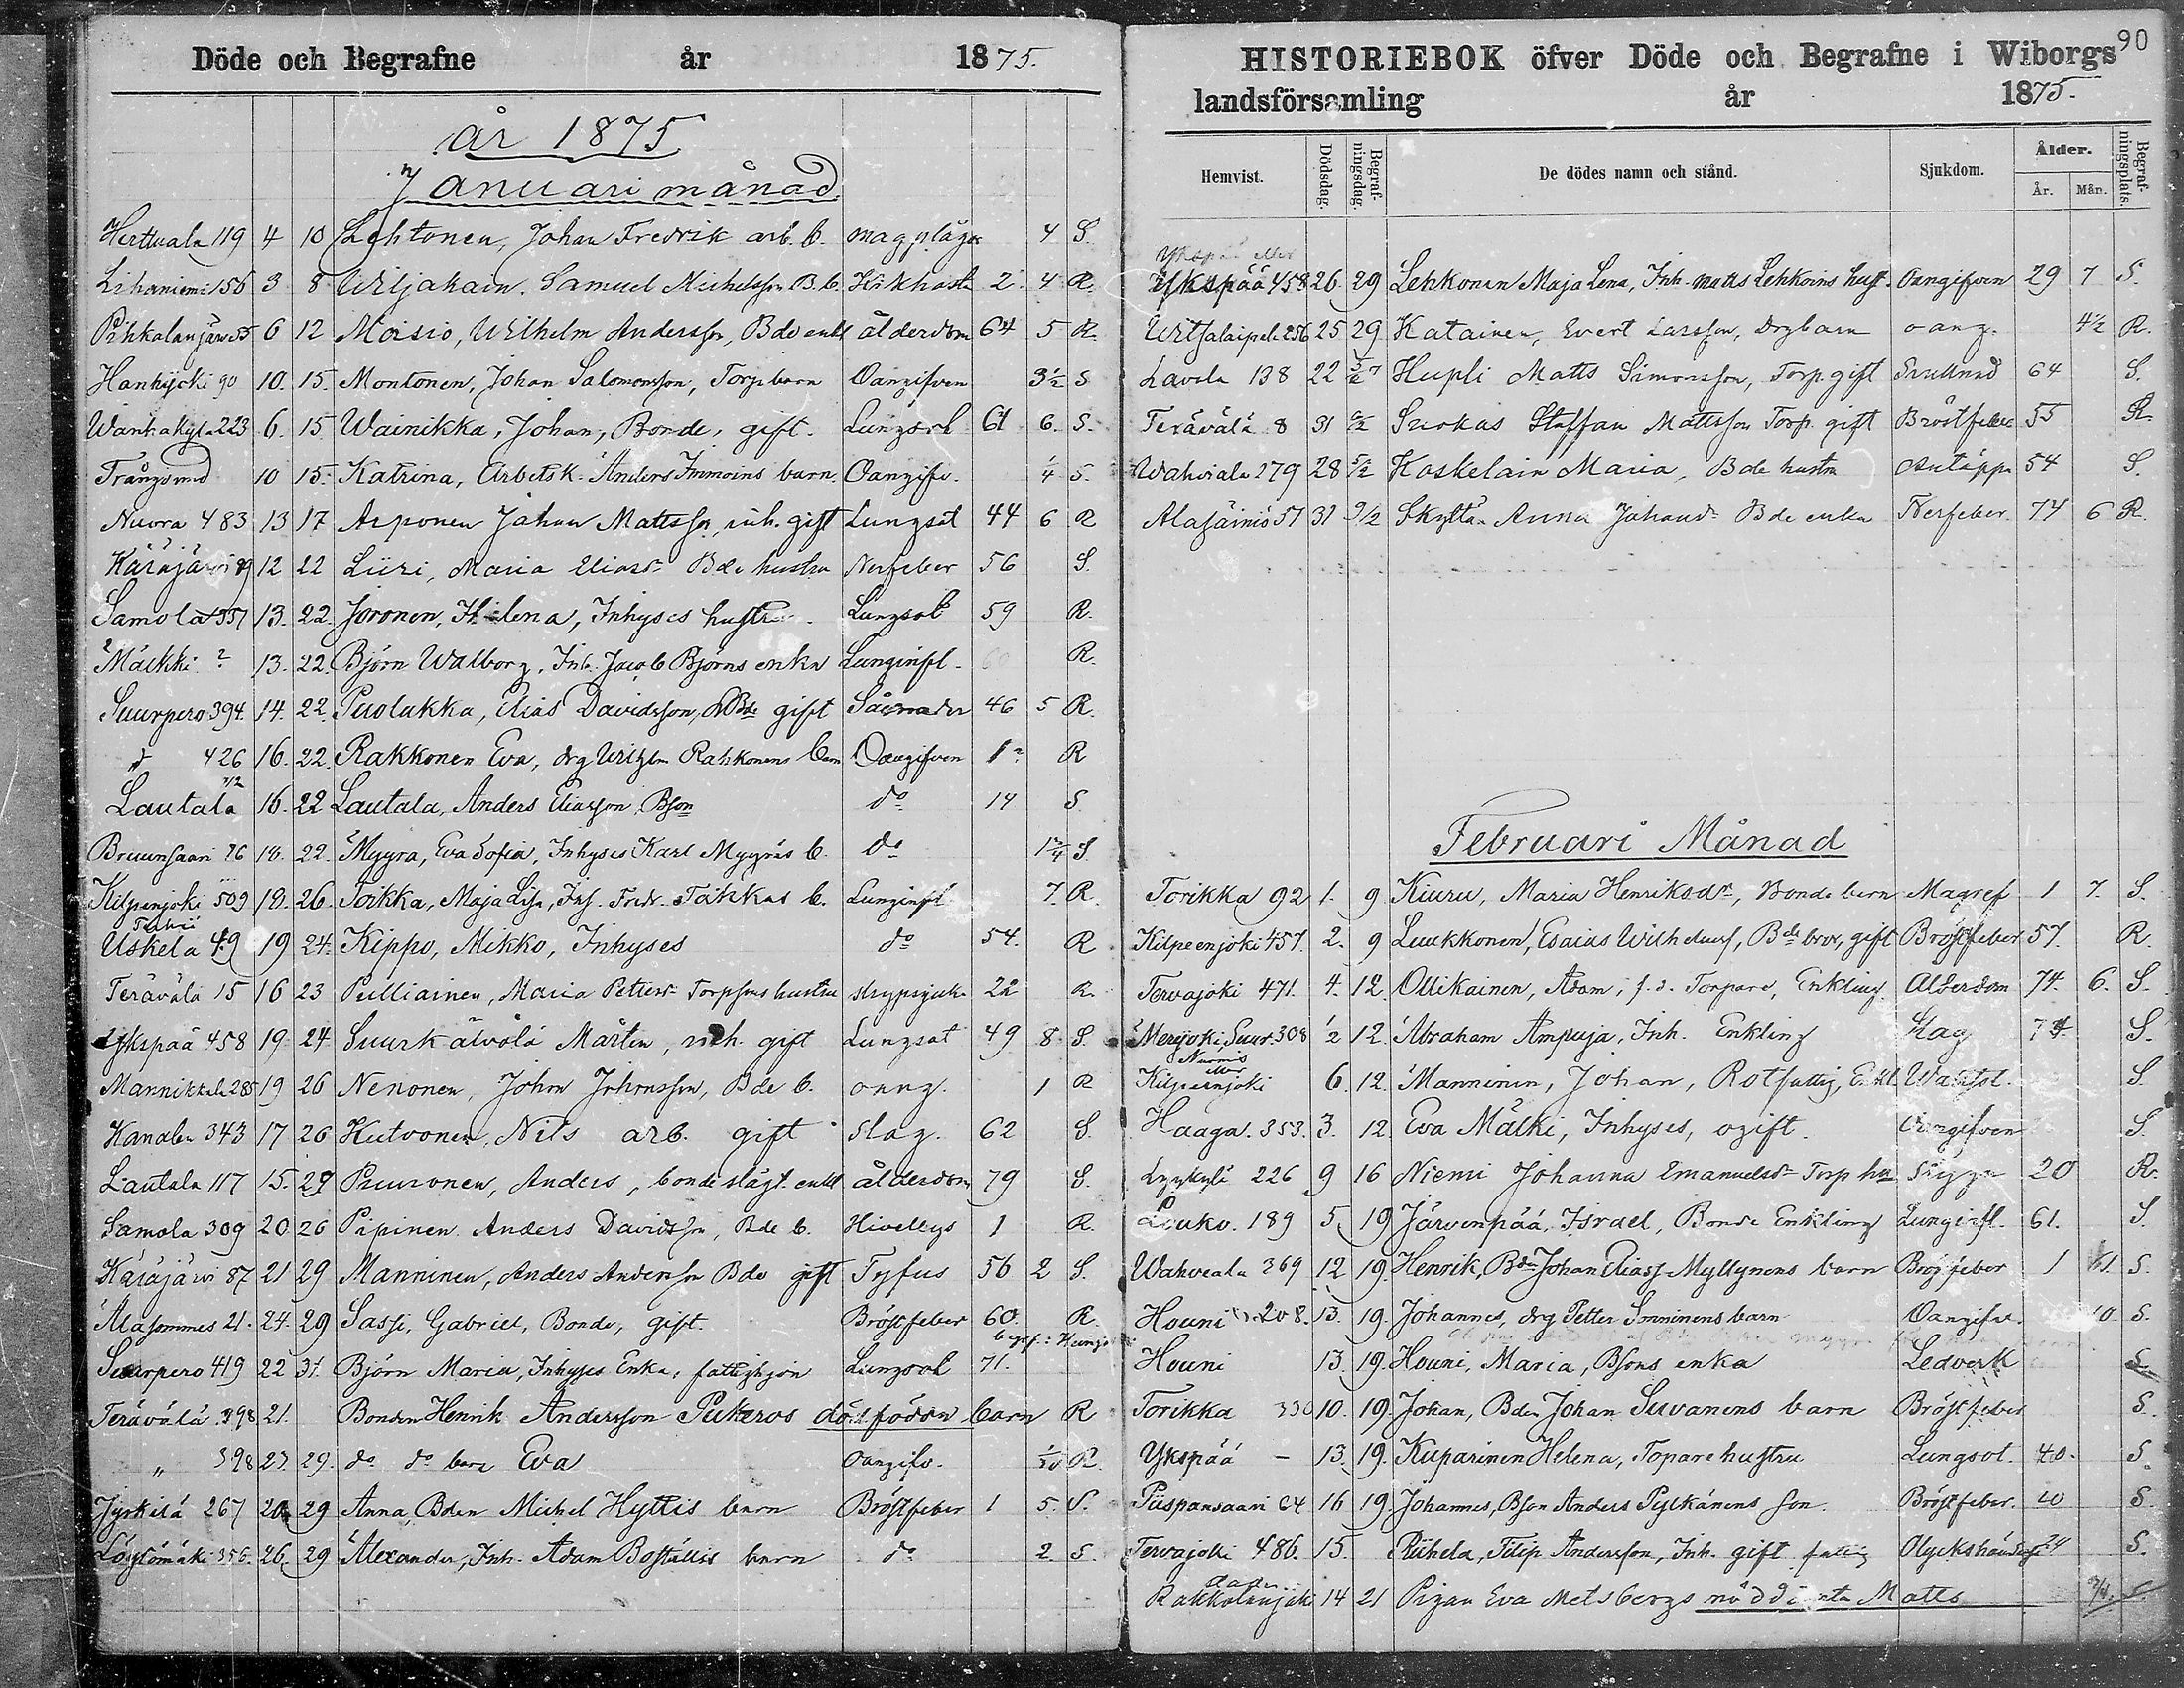 Döde och Begrafne år 1875.
år 1875
Januari månad
Herttuala 119 4 10 Lehtonen, Johan Fredrik arb. b. magplågor 4 S.
Lihaniemi 156 3 8 Wiljakain. Samuel Michelsson B. b. Kikhosta 2 4 R.
6 12 Moisio, Wilhelm Andersson, Bde enkl ålderdom 64 5 R.
Hanhijoki 90 10. 15. Montonen, Johan Salomonsson, Torp. barn Oangifven 3½ S
Wanhakylä 223 6. 15 Wainikka, Johan, Bonde, gift. Lungsot 61 6. S.
Trångsund 10 15. Katrina, Arbetsk. Anders Immoins barn. Oangifv. ¼ S.
Nuora 483 13 17 Asponen Johan Mattsson, inh. gift Lungsot 44 6 R
Käräjärvi 89 12 22 Liiri, Maria Eliasdr Bde hustru Nerfeber 56 S.
Samola 357 13. 22. Joronen, Helena, Inhyses hustru. Lungsot 59 R.
Mälkki ? 13. 22. Björn Walborg, Inh. Jacob Björns enka Lunginfl. 60 R.
Suurpero 394. 14. 22. Puolakka, Elias Davidsson, Bde gift Såsnader 46 5 R.
d 426 16. 22. Rakkonen Eva, drg Wilhelm Rakkonens barn Oangifven 1 R
Lautala 16. 22 Lautala, Anders Eliasson, Bson do 14 S
Bruunsaari 76 18. 22. Myyrä, Eva Sofia, Inhyses Karl Myyräs b. do 1¾ S.
Kilpeenjoki 509 18. 26. Toikka, Maja Lisa, Inh. Fredr. Toikkas b. Lunginfl. 7. R.
Uskela 49 19 24. Kippo, Mikko, Inhyses do 54. R
Terävälä 15 16 23 Pulliainen, Maria Pettersdr Torpsons hustru strypsjuk. 22 R.
Ykspää 458 19. 24 Suurkälvälä Mårten, inh. gift Lungsot 49 8. S.
Mannikkala 285 19 26 Nenonen, Johan Johansson, Bde b. oang. 1 R
Kanalen 343 17 26 Kutvonen, Nils arb. gift Slag. 62 S.
Lautala 117 15. 29 Puuronen, Anders, bonde slägt. enkl ålderdom 79 S.
Samola 309 20. 26 Pipinen Anders Davidsson, Bde b. 1 R.
Käräjärvi 87 21 29 Manninen, Anders Andersson Bde gift Tyfus 56 2 S.
Alasommes 21. 24. 29 Sassi, Gabriel, Bonde, gift. Bröstfeber 60. R.
Suurpero 419 22 31. Björn Maria, Inhyses Enka, fattighjon Lungsot 71.
Terävälä 398 21. Bonden Henrik Andersson Pukeros dödfödda barn R
" 398 23. 29. do do barn Eva Oangifv. 1/30 R.
Jyrkilä 267 20. 29 Anna, Bden Michel Hyttis barn Bröstfeber 1 5. S.
Löytömäki 356. 26. 29 Alexander, Inh. Adam Boställis barn do 2. S.
90
HISTORIEBOK öfver Döde och Begrafne i Wiborgs
landsförsamling år 1875.
Hemvist. Dödsdag. Begrafningsdag. De dödes namn och stånd. Sjukdom. Ålder. År. Mån. Begrafningsplats.
Ykspää 458 26. 29 Lehkonen Maja Lena, Inh. Matts Lehkoins hust. Oangifven 29 7 S.
256 25 29. Katainen, Evert Larsson, Drgbarn oang. 4½ R.
Lavola 138 22 Hupli Matts Simonsson, Torp. gift 64 S.
Terävälä 8 31 Surkas Staffan Mattsson Torp. gift Bröstfeber 55 R.
Wahviala 279 28 5/2 Koskelain Maria, Bde hustru Andtäppa 54 S.
Alasäiniö 51 31 9/2 Skyttä Anna Johansdr Bde enka Nerfeber. 74 6 R.
Februari Månad
Torikka 92 1. 9 Kiuru, Maria Henriksdr, Bonde barn Magref 1 7. S.
Kilpeenjoki 457. 2. 9 Luukkonen, Esaias Wilhelmss, Bde bror, gift Bröstfeber 57. R.
Tervajoki 471. 4. 12. Ollikainen, Adam, f.d. Torpare, Enkling. Ålderdom 74. 6. S.
Merijoki, Suur. 308 ½ 12. Abraham Ampuja, Inh. Enkling Slag 74. S.
Nurmis eller
Kilpeenjoki 6. 12. Manninen, Johan, Rotfattig, Enkl. Wattsot. S.
Haaga. 353. 3. 12. Eva Mälki, Inhyses, ogift. Oangifven S.
Lyykylä 226 9 16 Niemi Johanna Emanuelsdr Torp hu 20 R.
Louko. 189 5. 19 Järvenpää, Israel, Bonde Enkling Lunginfl. 61. S.
Wahviala 369 12 19. Henrik, Bde Johan Eliass. Myllynens barn Bröstfeber 1 11. S.
Houni 208. 13. 19. Johannes, drg Petter Sonninens barn Oangifve. 10. S.
Houni 13. 19. Houni, Maria, Bsons enka Ledverk S
Torikka 330 10. 19. Johan, Bden Johan Suvanens barn Bröstfeber S.
Ykspää - 13. 19. Kuparinen Helena, Toparehustru Lungsot. 40. S.
Piispansaari 24 16 19. Johannes, Bson Anders Pylkänens son. Bröstfeber. 20 S.
Tervajoki 486. 15. Riihelä, Filip Andersson, Inh. gift fattig Olyckshändelse 24 S.
Rakkolanjoki 14 21 Pigan Eva Metsbergs nöddöpta Matts 3/4. S.